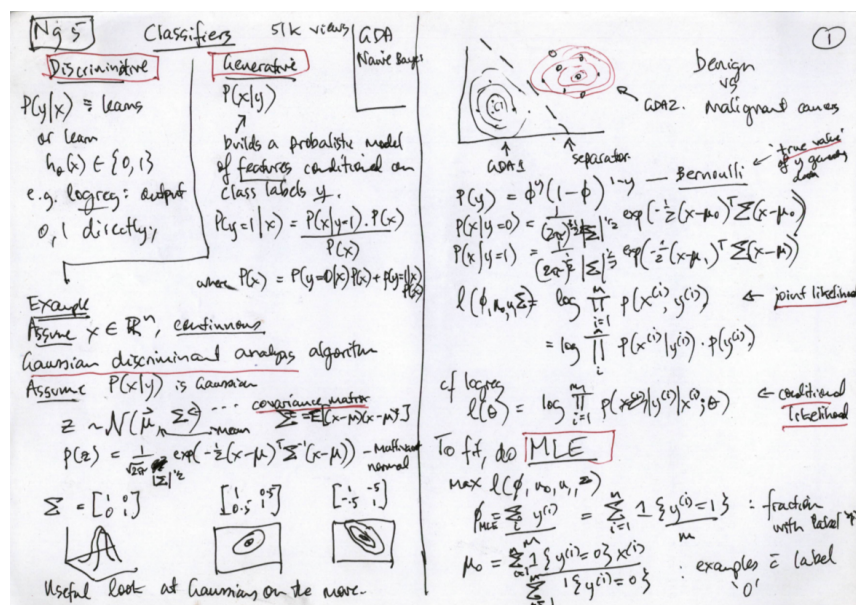 Ng 5
Classifiers
51k views
GDA
Naive Bayes
Discriminitive
P(y|x) = learns
or learn
hθ(x) ∈ {0,1}
e.g. logreg: output
0,1 directly;
Generative
P(x|y)
builds a probalistic model
of features conditional on
class labels y.
P(y=1|x) = P(x|y=1).P(x) / P(x)
where P(x) = P(y=0|x)P(x) + P(y=1|x)P(x)
Example
Assume x ∈ ℝⁿ, continuous
Gaussian discriminant analysis algorithm
Assume P(x|y) is Gaussian
covariance matrix
z ~ N(μ⃗, Σ) ... Σ = E[(x-μ)(x-μ)ᵀ]
mean
p(z) = 1/(√2π |Σ|^1/2) exp(-½(x-μ)ᵀΣ⁻¹(x-μ)) - Multivariate
normal
Σ = [1 0; 0 1] [1 0.5; 0.5 1] [1 -.5; -.5 1]
Useful look at Gaussians on the move.
1
Benign
vs
malignant cancers
GDA2.
GDA1
separator
P(y) = φ^y (1-φ)^1-y — Bernoulli
"true value"
of y
P(x|y=0) = 1/((2π)^n/2 |Σ|^1/2) exp(-½(x-μ₀)ᵀΣ(x-μ₀))
P(x|y=1) = 1/((2π)^n/2 |Σ|^1/2) exp(-½(x-μ₁)ᵀΣ(x-μ))
l(φ,μ₀,μ,Σ) = log ∏ᵢ₌₁ᵐ P(x⁽ⁱ⁾, y⁽ⁱ⁾) ← joint likelihood
= log ∏ᵢ P(x⁽ⁱ⁾|y⁽ⁱ⁾) · P(y⁽ⁱ⁾)
cf logreg
l(θ) = log ∏ᵢ₌₁ᵐ P(y⁽ⁱ⁾|x⁽ⁱ⁾;θ) ← conditional
likelihood
To fit, do MLE
max l(φ, μ₀, μ₁, Σ)
φMLE = Σᵢ y⁽ⁱ⁾ / m = Σᵢ₌₁ᵐ 1{y⁽ⁱ⁾=1} / m : fraction
with label '1'
μ₀ = Σᵢ₌₁ᵐ 1{y⁽ⁱ⁾=0}x⁽ⁱ⁾ / Σᵢ₌₁ᵐ 1{y⁽ⁱ⁾=0} : examples c̄ label
'0'